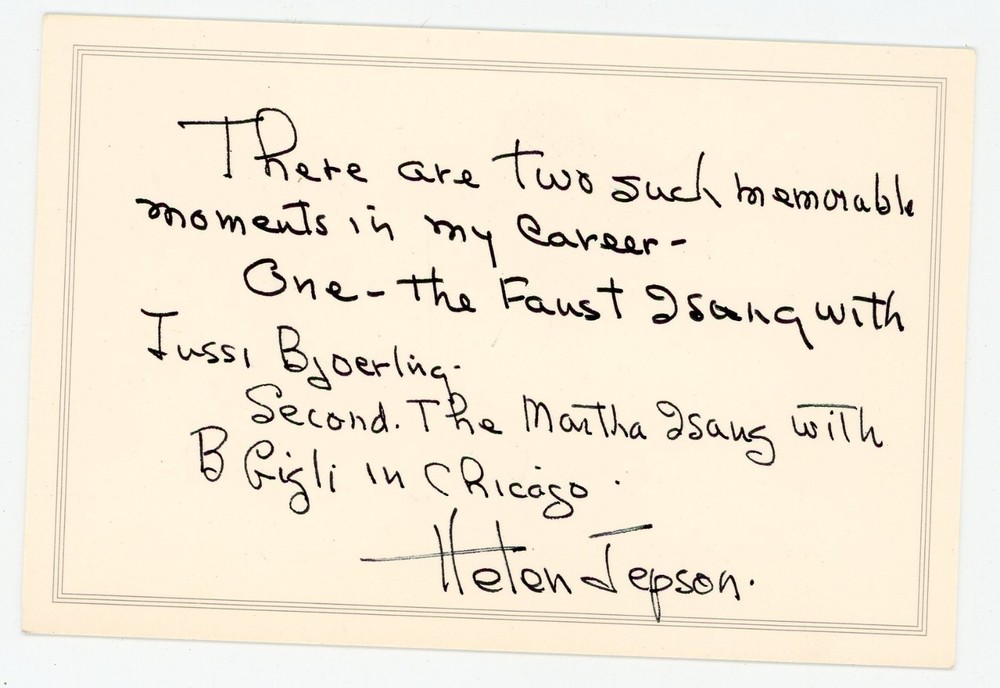 There are two such memorable
moments in my Career-
One - the Faust I sang with
Jussi Bjoerling.
Second. The Martha I sang with
B Gigli in Chicago.
Helen Jepson.